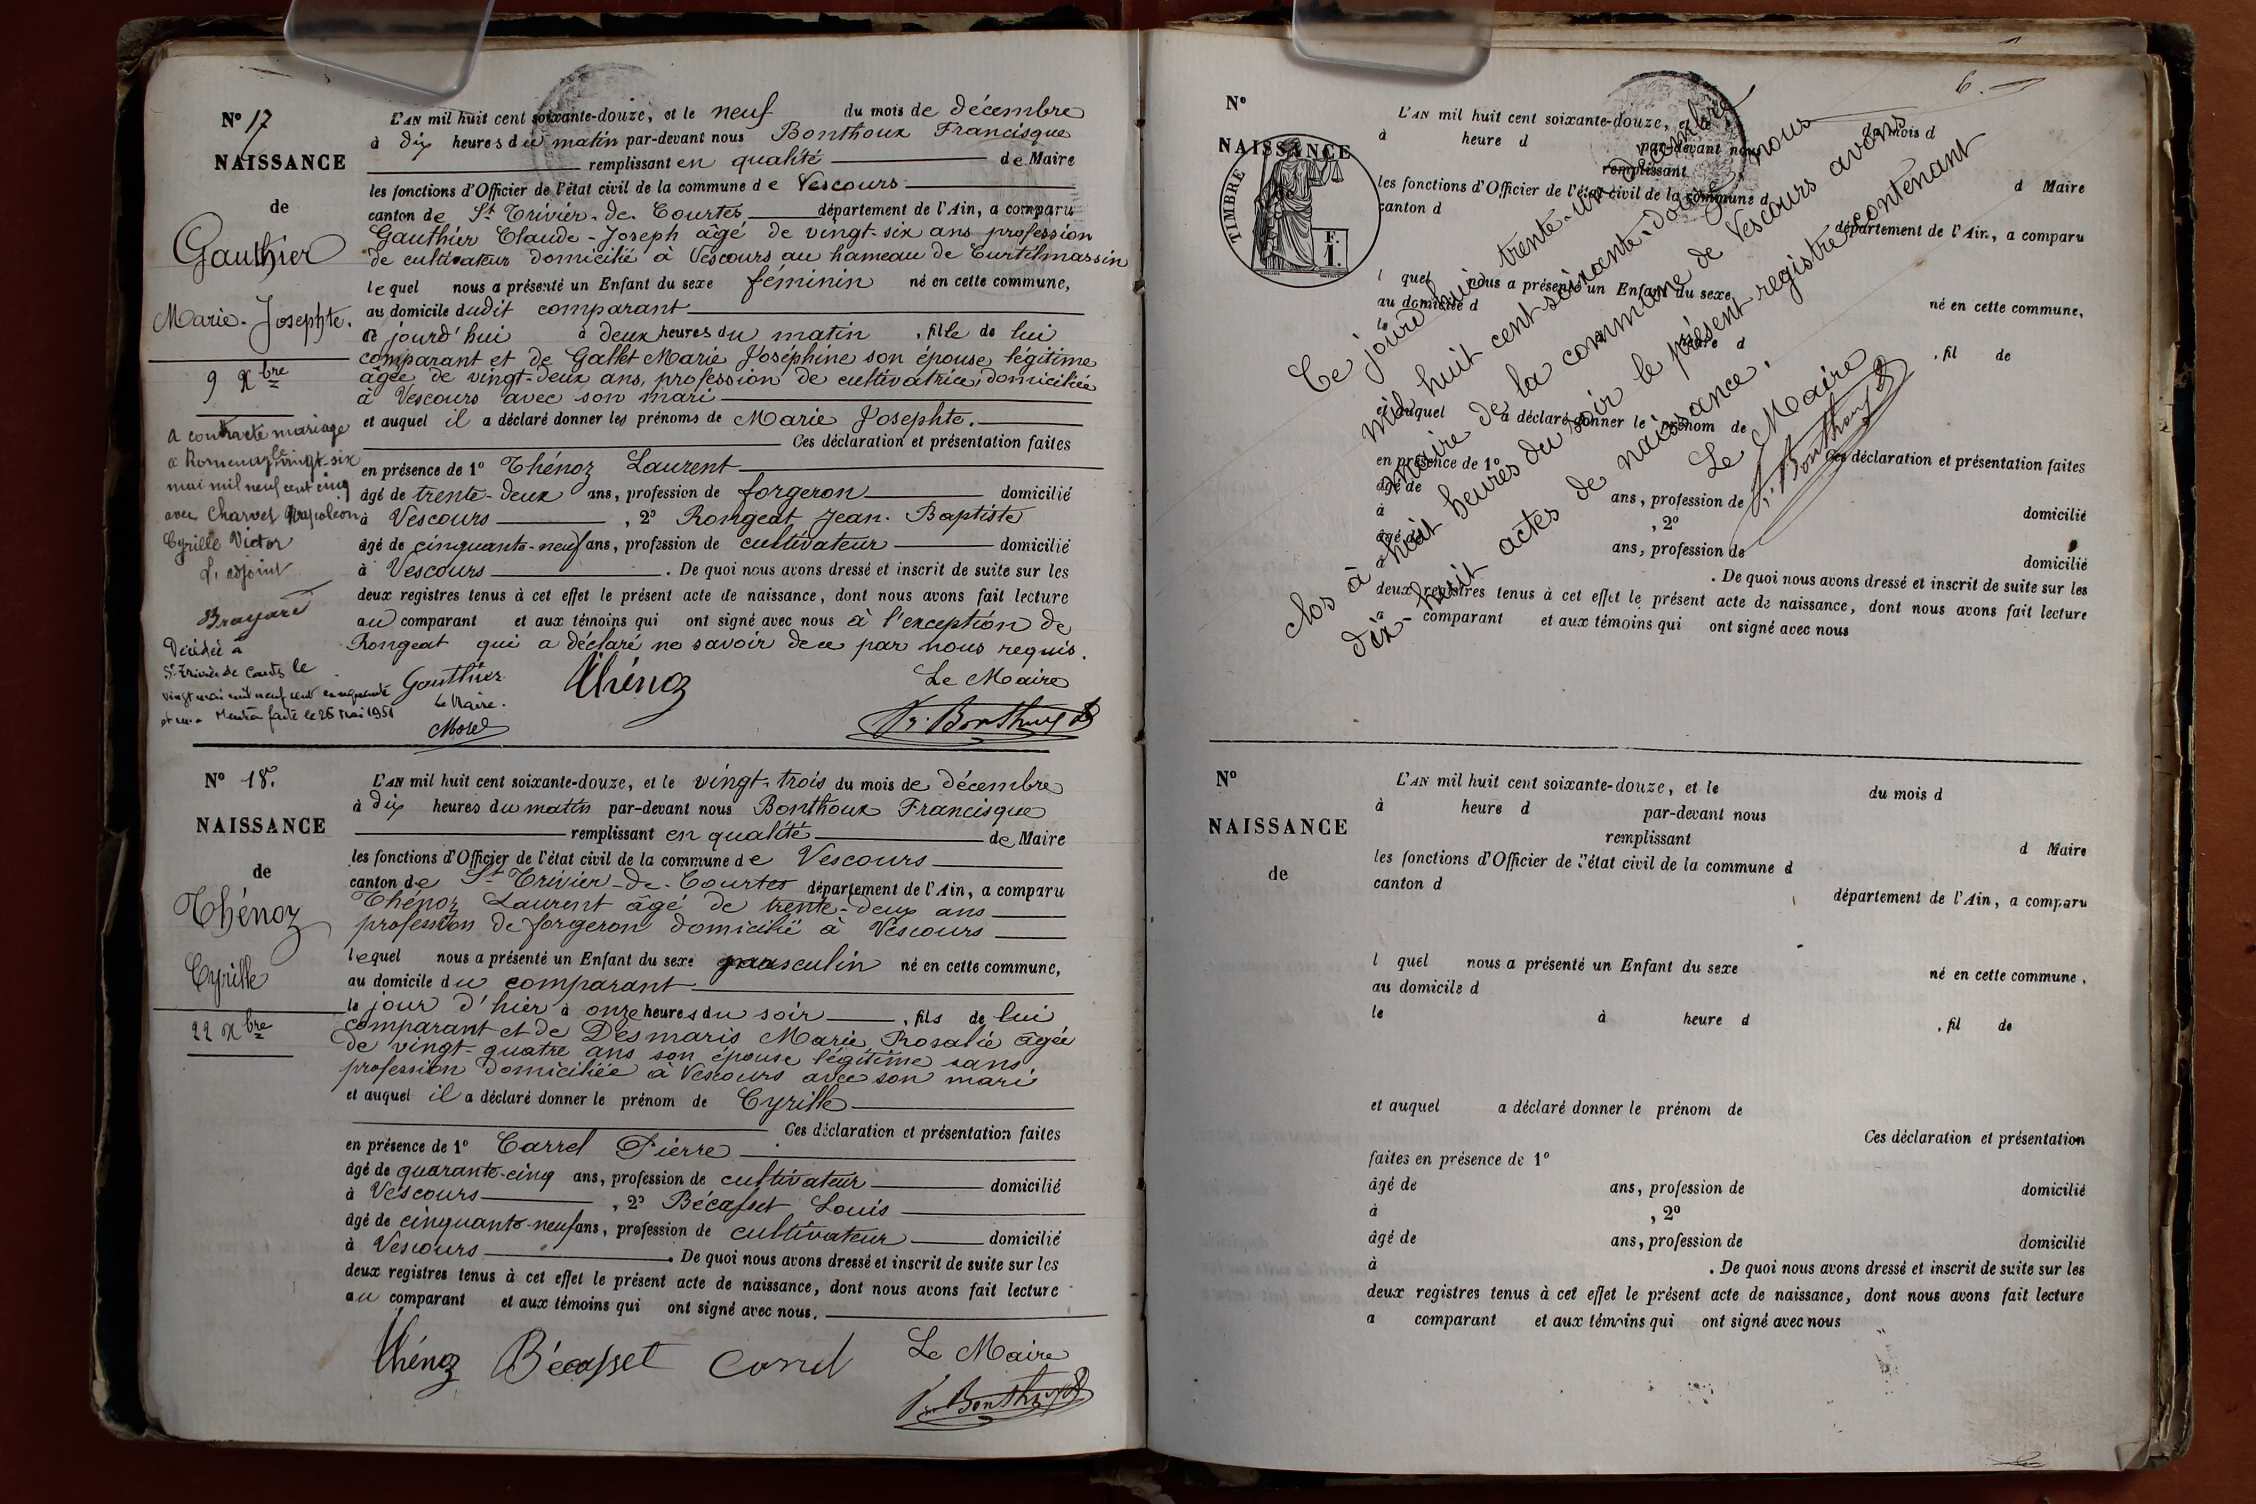 N° 17
NAISSANCE
de
Gauthier
Marie-Josephte.
9 Xbre
a contracté mariage
à Romenay le vingt-six
mai mil neuf cent cinq
avec Charvet Napoléon
Cyrille Victor
L'adjoint
Brayard
Décédée à
St Trivier de Courtes le
vingt mai mil neuf cent cinquante
et un. Mention faite le 26 mai 1951
Le Maire.
Morel
L'AN mil huit cent soixante-douze, et le neuf du mois de décembre
à dix heures du matin par-devant nous Bonthoux Francisque
remplissant en qualité de Maire
les fonctions d'Officier de l'état civil de la commune de Vescours
canton de St Trivier-de-Courtes département de l'Ain, a comparu
Gauthier Claude-Joseph âgé de vingt-six ans profession
de cultivateur domicilié à Vescours au hameau de Curtilmassin
lequel nous a présenté un Enfant du sexe féminin né en cette commune,
au domicile dudit comparant
ce jourd'hui à deux heures du matin , fille de lui
comparant et de Gallet Marie Joséphine son épouse légitime
âgée de vingt-deux ans, profession de cultivatrice, domiciliée
à Vescours avec son mari
et auquel il a déclaré donner les prénoms de Marie Josephte.
Ces déclaration et présentation faites
en présence de 1° Thénoz Laurent
âgé de trente-deux ans, profession de forgeron domicilié
à Vescours , 2° Rongeat Jean-Baptiste
âgé de cinquante-neuf ans, profession de cultivateur domicilié
à Vescours . De quoi nous avons dressé et inscrit de suite sur les
deux registres tenus à cet effet le présent acte de naissance, dont nous avons fait lecture
au comparant et aux témoins qui ont signé avec nous à l'exception de
Rongeat qui a déclaré ne savoir de ce par nous requis.
Gauthier Thénoz Le Maire
Fr. Bonthoux
N° 18.
NAISSANCE
de
Thénoz
Cyrille
22 Xbre
L'AN mil huit cent soixante-douze, et le vingt-trois du mois de décembre
à dix heures du matin par-devant nous Bonthoux Francisque
remplissant en qualité de Maire
les fonctions d'Officier de l'état civil de la commune de Vescours
canton de St Trivier-de-Courtes département de l'Ain, a comparu
Thénoz Laurent âgé de trente-deux ans
profession de forgeron domicilié à Vescours
lequel nous a présenté un Enfant du sexe masculin né en cette commune,
au domicile du comparant
le jour d'hier à onze heures du soir , fils de lui
comparant et de Desmaris Marie Rosalie âgée
de vingt-quatre ans son épouse légitime sans
profession domiciliée à Vescours avec son mari
et auquel il a déclaré donner le prénom de Cyrille
Ces déclaration et présentation faites
en présence de 1° Carrel Pierre
âgé de quarante-cinq ans, profession de cultivateur domicilié
à Vescours , 2° Bécasset Louis
âgé de cinquante-neuf ans, profession de cultivateur domicilié
à Vescours . De quoi nous avons dressé et inscrit de suite sur les
deux registres tenus à cet effet le présent acte de naissance, dont nous avons fait lecture
au comparant et aux témoins qui ont signé avec nous.
Thénoz Bécasset Carrel Le Maire
Fr. Bonthoux
6.
N°
NAISSANCE
TIMBRE
F.
1.
L'AN mil huit cent soixante-douze, et le du mois d
à heure d par-devant nous
remplissant d Maire
les fonctions d'Officier de l'état civil de la commune d
canton d département de l'Ain, a comparu
l quel nous a présenté un Enfant du sexe né en cette commune,
au domicile d
le heure d , fil de
et auquel a déclaré donner le prénom de
Ces déclaration et présentation faites
en présence de 1°
âgé de ans, profession de domicilié
à , 2°
âgé de ans, profession de domicilié
à . De quoi nous avons dressé et inscrit de suite sur les
deux registres tenus à cet effet le présent acte de naissance, dont nous avons fait lecture
a comparant et aux témoins qui ont signé avec nous
Ce jourd'hui trente-un décembre
mil huit cent soixante-douze nous
maire de la commune de Vescours avons
clos à huit heures du soir le présent registre contenant
dix-huit actes de naissance.
Le Maire
Fr. Bonthoux
N°
NAISSANCE
de
L'AN mil huit cent soixante-douze, et le du mois d
à heure d par-devant nous
remplissant d Maire
les fonctions d'Officier de l'état civil de la commune d
canton d département de l'Ain, a comparu
l quel nous a présenté un Enfant du sexe né en cette commune,
au domicile d
le à heure d , fil de
et auquel a déclaré donner le prénom de
Ces déclaration et présentation
faites en présence de 1°
âgé de ans, profession de domicilié
à , 2°
âgé de ans, profession de domicilié
à . De quoi nous avons dressé et inscrit de suite sur les
deux registres tenus à cet effet le présent acte de naissance, dont nous avons fait lecture
a comparant et aux témoins qui ont signé avec nous